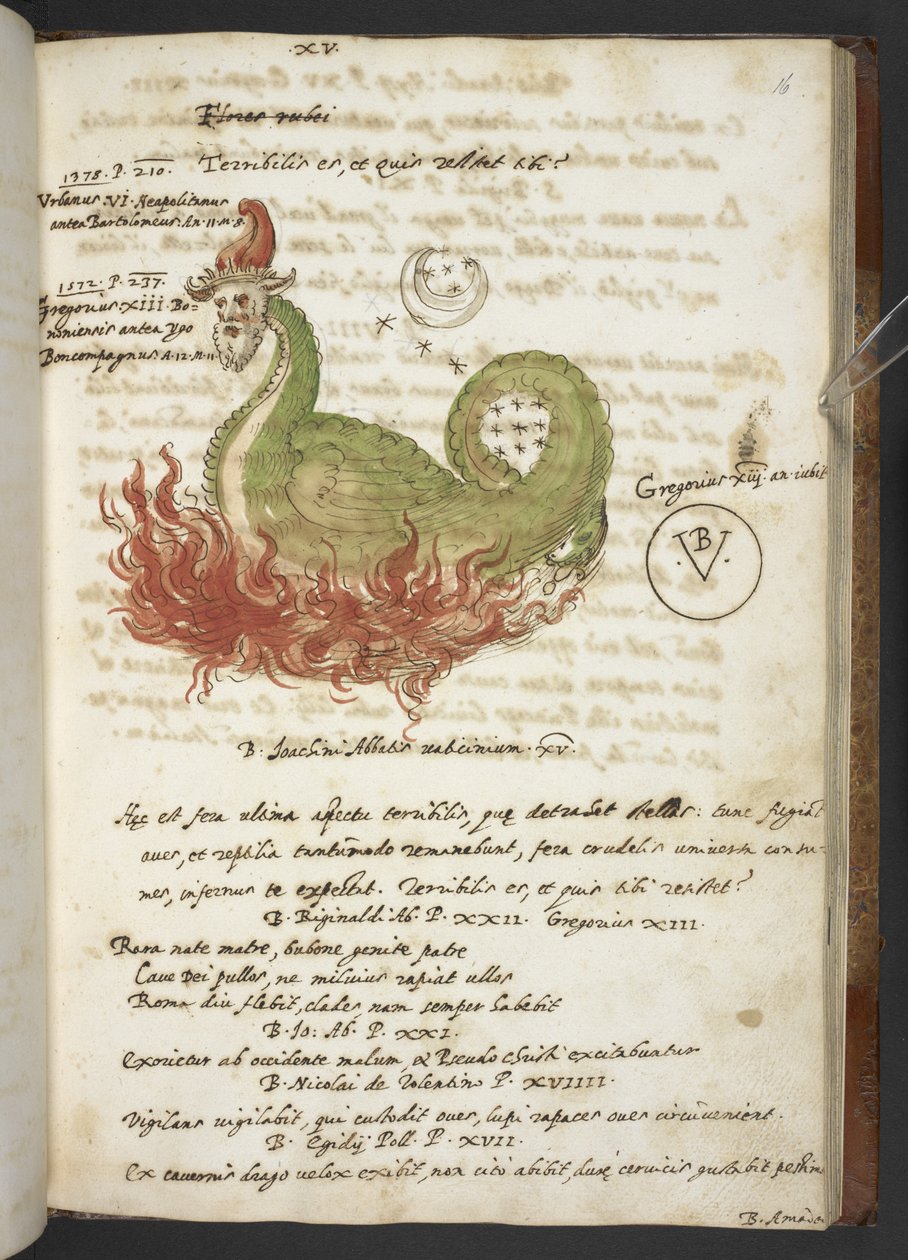 .XV.
16
Flores rubei
Terribilis es, et quis resistet tibi?
1378. P. 210.
Urbanus .VI. Neapolitanus
antea Bartolomeus. An. 11. M. 8.
1572. P. 237.
Gregorius XIII. Bo=
noniensis antea Ygo
Boncompagnus. A. 12. M. 11
Gregorius XIIJ. an. iubil
.V B.
B. Joachini Abbatis vaticinium. XV.
Hęc est fera ultima aspectu terribilis, quę detrahet stellas: tunc fugiāt
aves, et reptilia tantūmodo remanebunt, fera crudelis universa consu-
mes, infernus te expectat. Terribilis es, et quis tibi resistet?
B. Riginaldi Ab. P. XXII. Gregorius XIII.
Rara nate matre, bubone genite patre
Cave Dei pullos, ne milvius rapiat ullos
Roma diu flebit, clades, nam semper habebit
B. Jo: Ab. P. XXI.
Exorietur ab occidente malum, & Pseudo Christi excitabuntur
B. Nicolai de Tolentino P. XVIIII.
Vigilans vigilabit, qui custodit oves, lupi rapaces oves circūvenient.
B. Egidij Poll. P. XVII.
Ex cavernis drago velox exibit, non cito abibit, durę cervicis gustabit
B. Amade